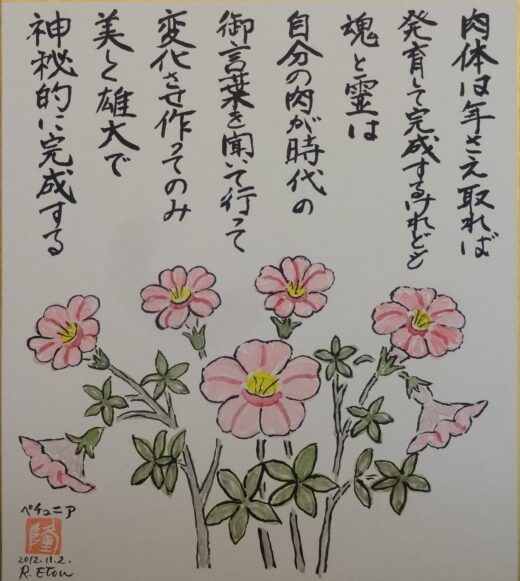 肉体は年さえ取れば
発育して完成するけれども
魂と霊は
自分の肉が時代の
御言葉を聞いて行って
変化させ作ってのみ
美と雄大で
神秘的に完成する
ペチュニア
隆
2012.11.2.
R. Etou